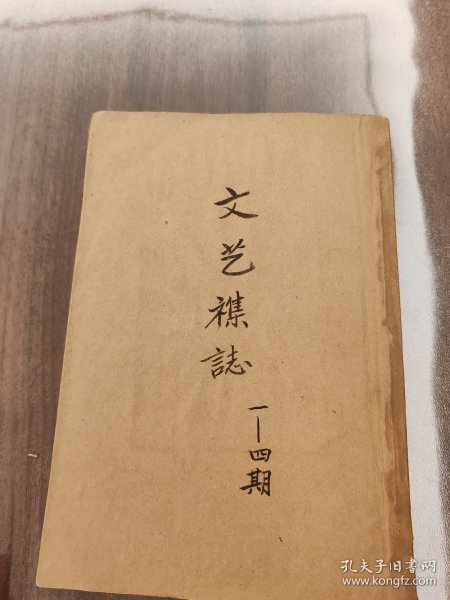 文艺襍誌
一—四期
孔夫子旧书网
www.kongfz.com